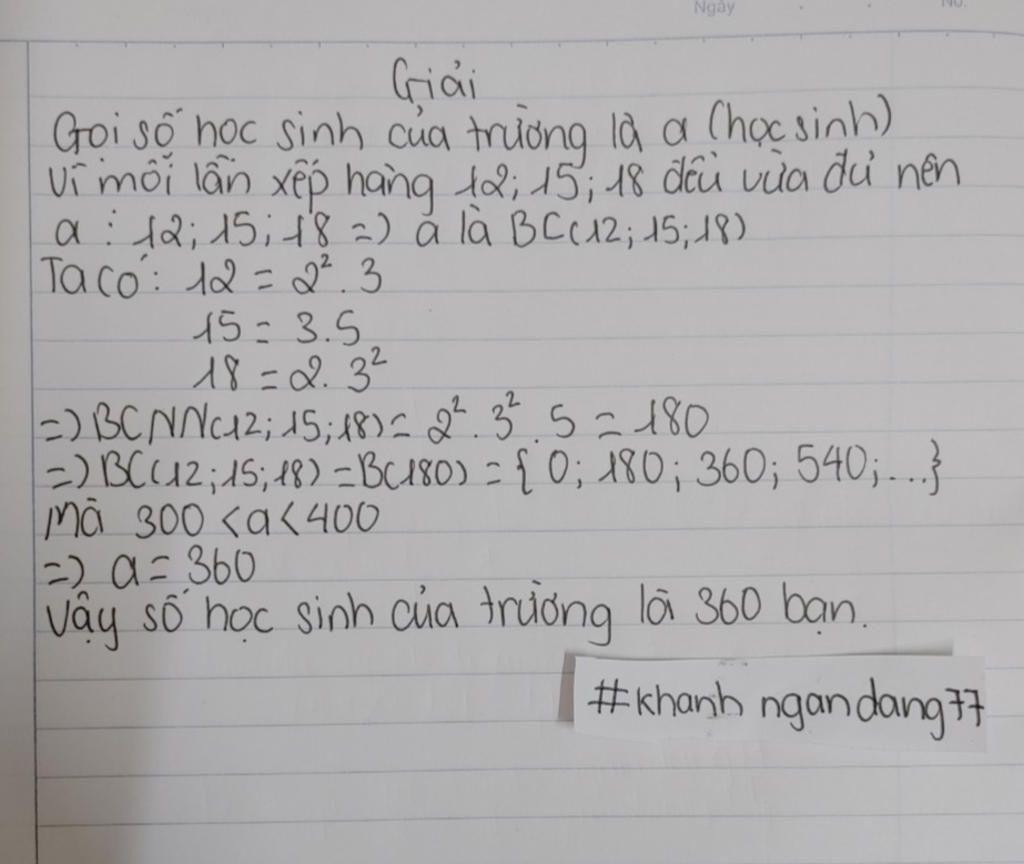 Ngày
No.
Giải
Gọi số học sinh của trường là a (học sinh)
Vì mỗi lần xếp hàng 12; 15; 18 đều vừa đủ nên
a ⋮ 12; 15; 18 => a là BC(12; 15; 18)
Ta có: 12 = 2². 3
15 = 3.5
18 = 2. 3²
=> BCNN(12; 15; 18) = 2². 3². 5 = 180
=> BC(12; 15; 18) = B(180) = { 0; 180; 360; 540; ...}
Mà 300 < a < 400
=> a = 360
Vậy số học sinh của trường là 360 bạn.
#khanh ngandang77